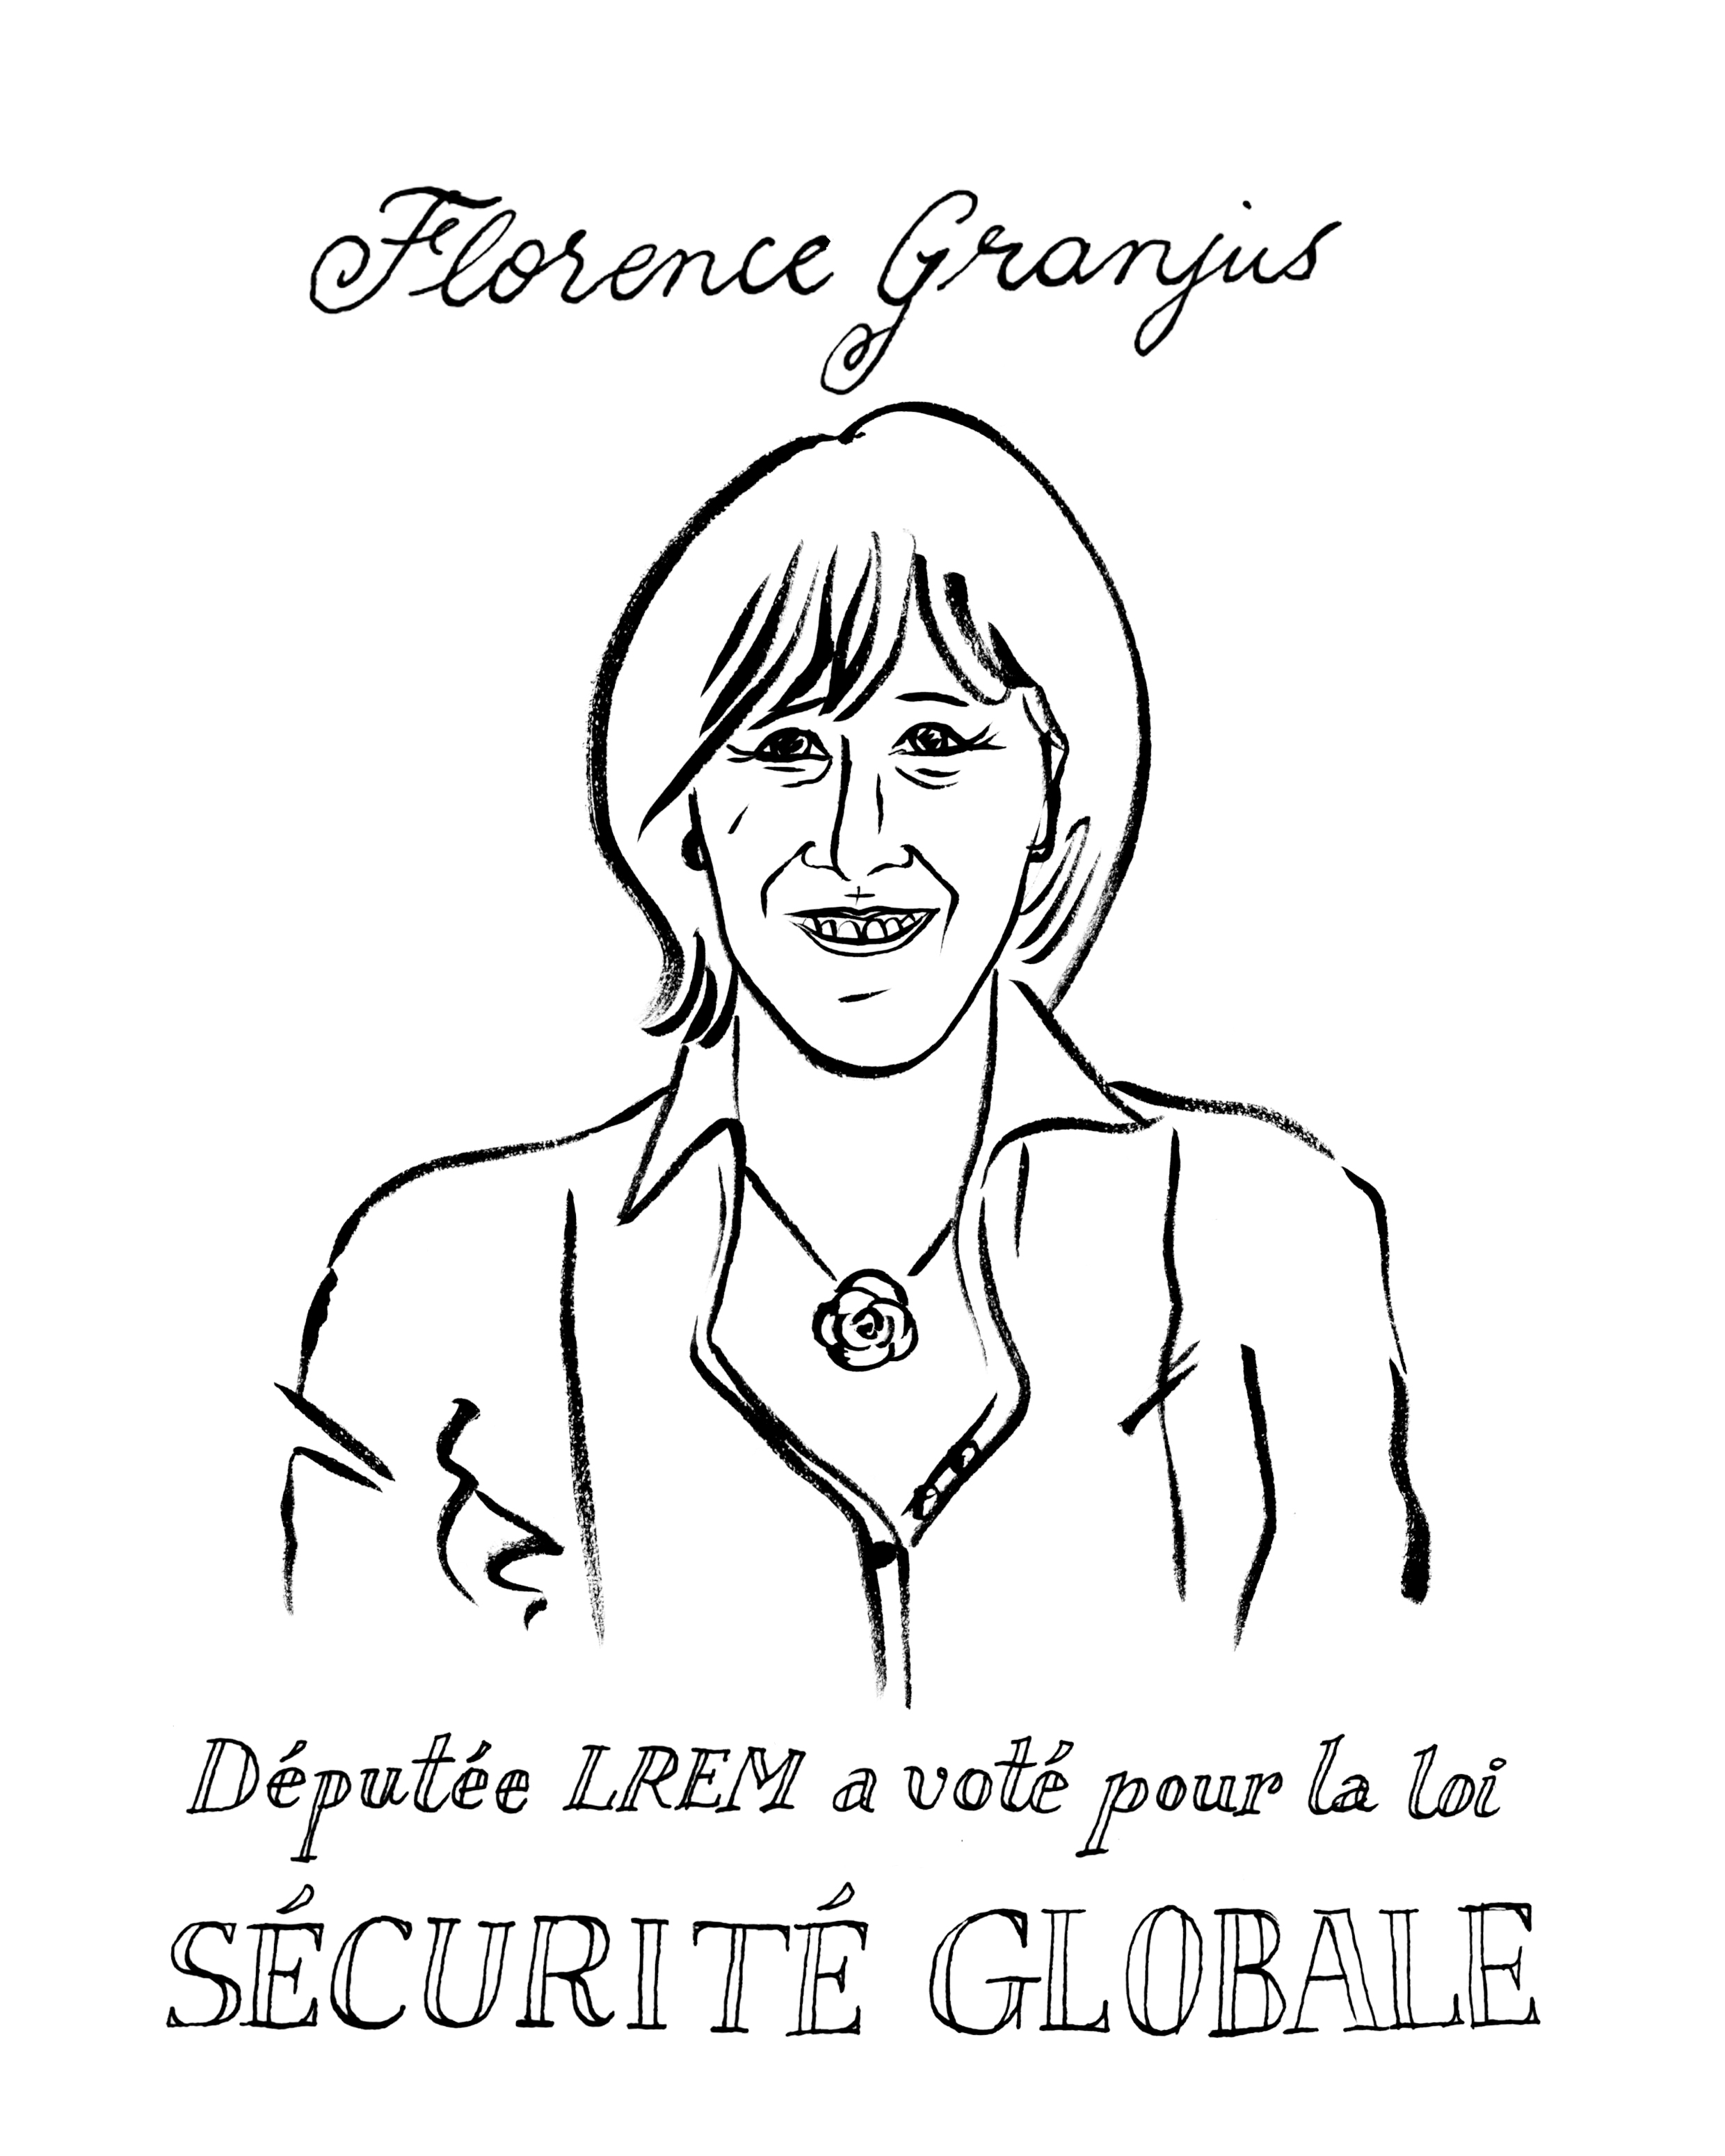 Florence Granjus
Députée LREM a voté pour la loi
SÉCURITÉ GLOBALE